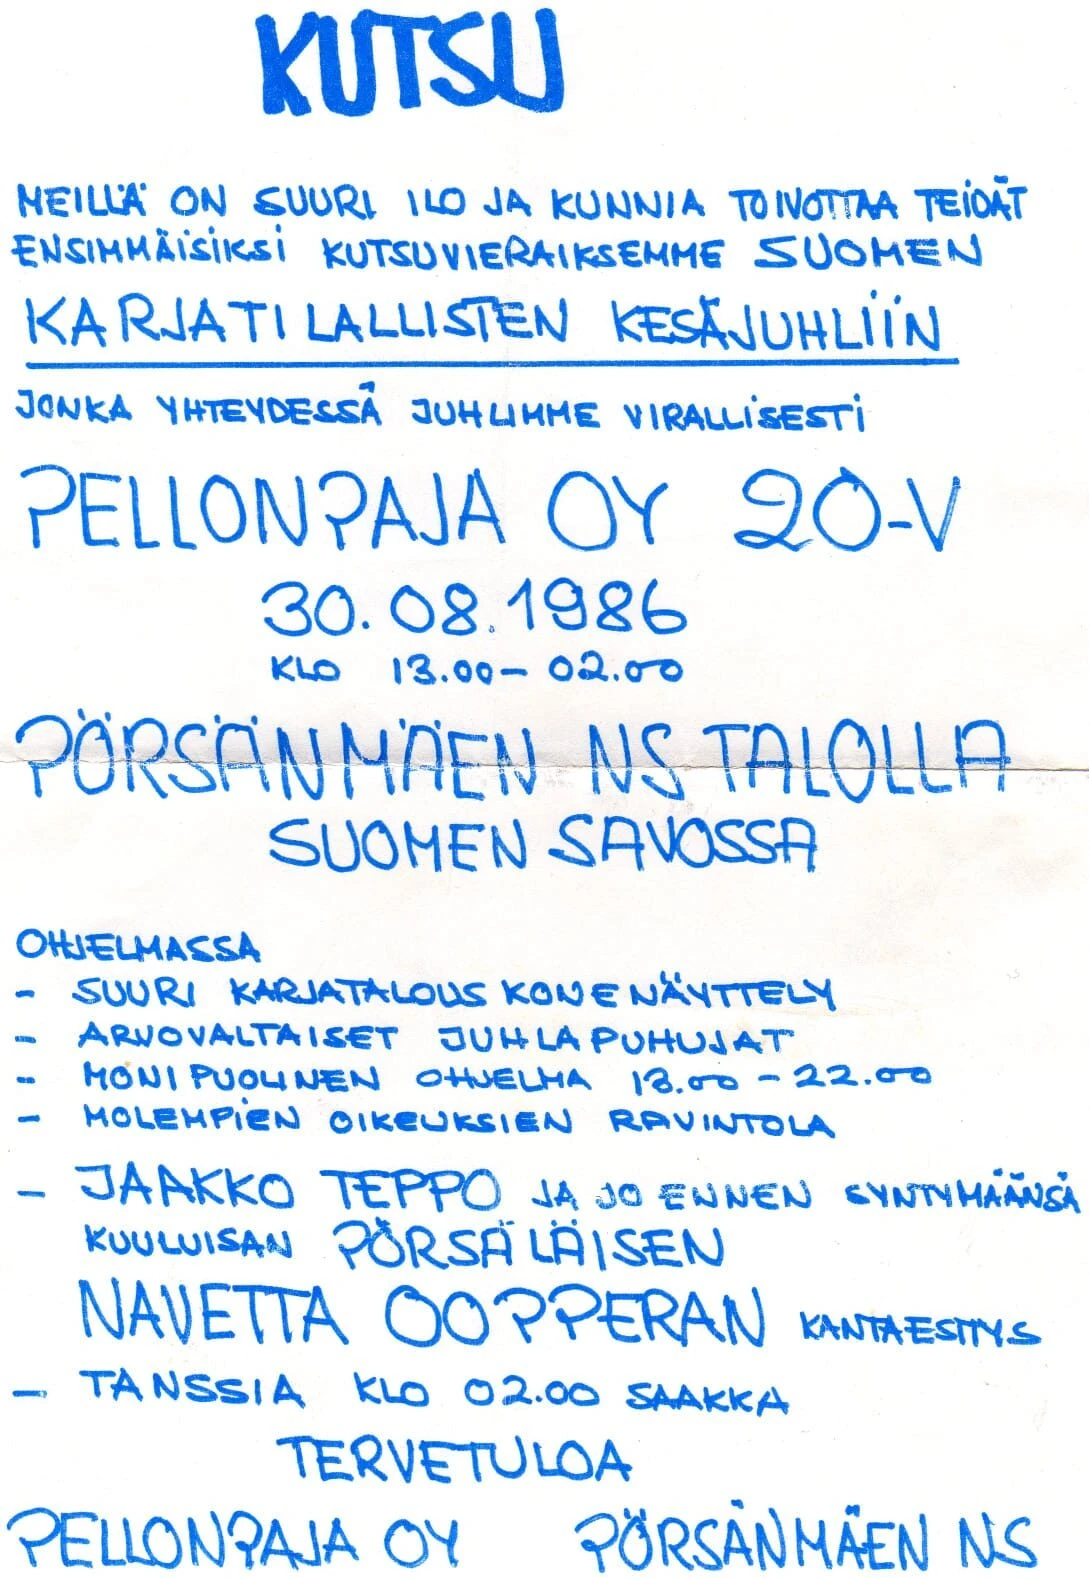 KUTSU
MEILLÄ ON SUURI ILO JA KUNNIA TOIVOTTAA TEIDÄT
ENSIMMÄISIKSI KUTSUVIERAIKSEMME SUOMEN
KARJATILALLISTEN KESÄJUHLIIN
JONKA YHTEYDESSÄ JUHLIMME VIRALLISESTI
PELLONPAJA OY 20-V
30.08.1986
KLO 13.00 - 02.00
PÖRSÄNMÄEN NS TALOLLA
SUOMEN SAVOSSA
OHJELMASSA
- SUURI KARJATALOUS KONENÄYTTELY
- ARVOVALTAISET JUHLAPUHUJAT
- MONIPUOLINEN OHJELMA 13.00 - 22.00
- MOLEMPIEN OIKEUKSIEN RAVINTOLA
- JAAKKO TEPPO JA JO ENNEN SYNTYMÄÄNSÄ
KUULUISAN PÖRSÄLÄISEN
NAVETTA OOPPERAN KANTAESITYS
- TANSSIA KLO 02.00 SAAKKA
TERVETULOA
PELLONPAJA OY PÖRSÄNMÄEN NS